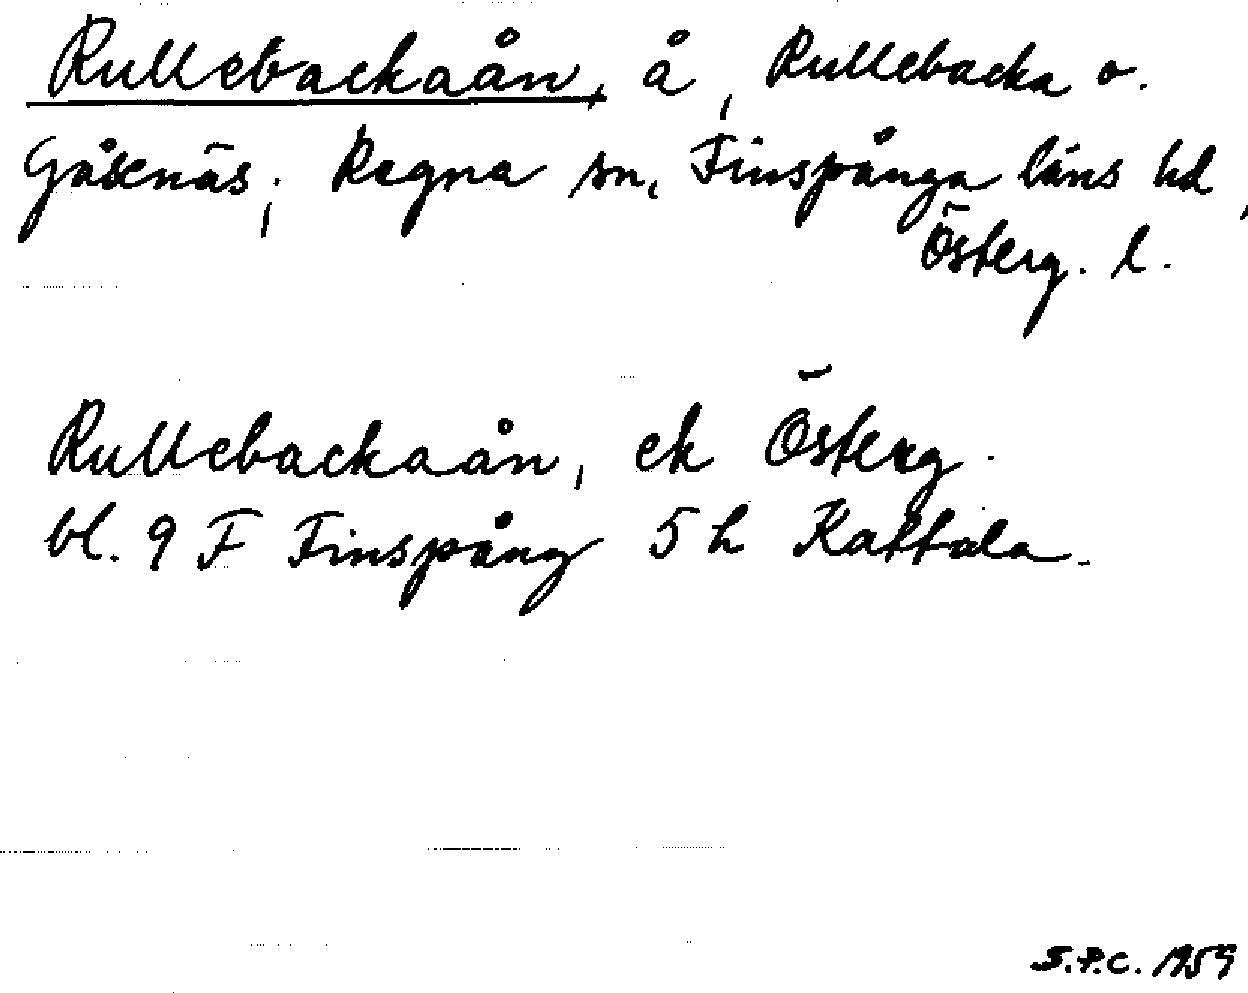 Rullebackaån, å, Rullebacka o.
Gåsenäs, Regna sn, Finspånga läns hd,
Österg. l.
Rullebackaån, ek Österg.
bl. 9 F Finspång 5 h Kattala.
S.P.C. 1959